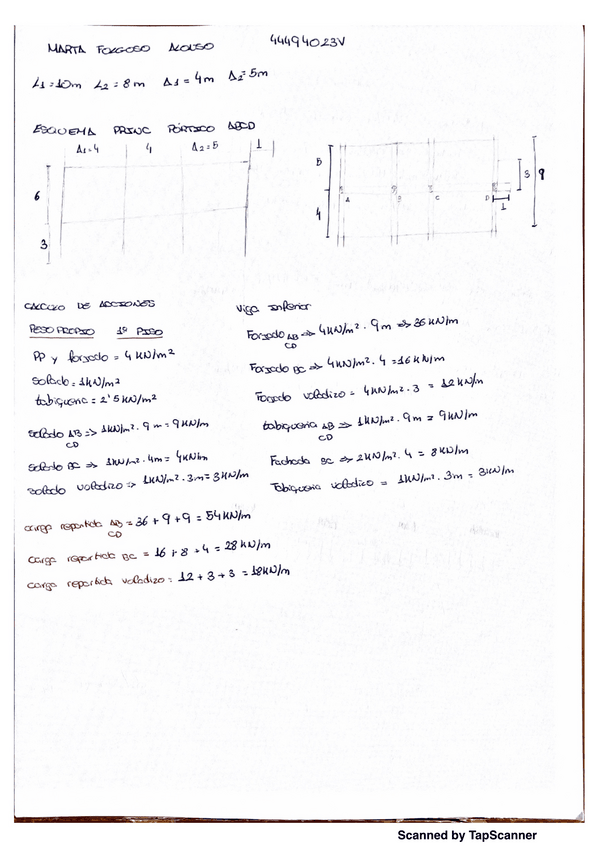 MARTA FOLGOSO ALONSO 44494023V
L1=10m L2=8m Δ1=4m Δ2=5m
ESQUEMA PRINC PÓRTICO ABCD
Δ1=4 4 Δ2=5 1
6
3
5
4
A B C D
1
3 9
CALCULO DE ACCIONES
PESO PROPIO 1º PISO
PP y forjado = 4 KN/m²
Solado = 1KN/m²
tabiquería = 2'5KN/m²
Solado AB => 1KN/m² · 9m = 9KN/m
CD
Solado BC => 1KN/m² · 4m = 4KN/m
Solado voladizo => 1KN/m² · 3m = 3KN/m
Viga Inferior
Forjado AB => 4KN/m² · 9m => 36 KN/m
CD
Forjado BC => 4KN/m² · 4 = 16KN/m
Forjado voladizo = 4KN/m² · 3 = 12KN/m
tabiqueria AB => 1KN/m² · 9m = 9KN/m
CD
Fachada BC => 2KN/m² · 4 = 8KN/m
Tabiqueria voladizo = 1KN/m² · 3m = 3KN/m
carga repartida AB = 36 + 9 + 9 = 54KN/m
CD
carga repartida BC = 16 + 8 + 4 = 28KN/m
carga repartida voladizo = 12 + 3 + 3 = 18KN/m
Scanned by TapScanner